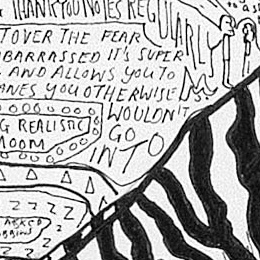 THANK YOU NOTES REGULARLY
T OVER THE FEAR
BARRASSED IT'S SUPER
AND ALLOWS YOU TO
ANES YOU OTHERWISE
WOULDN'T
GO
INTO
G REALISTIC
MOOM
Z Z Z Z
NAKED